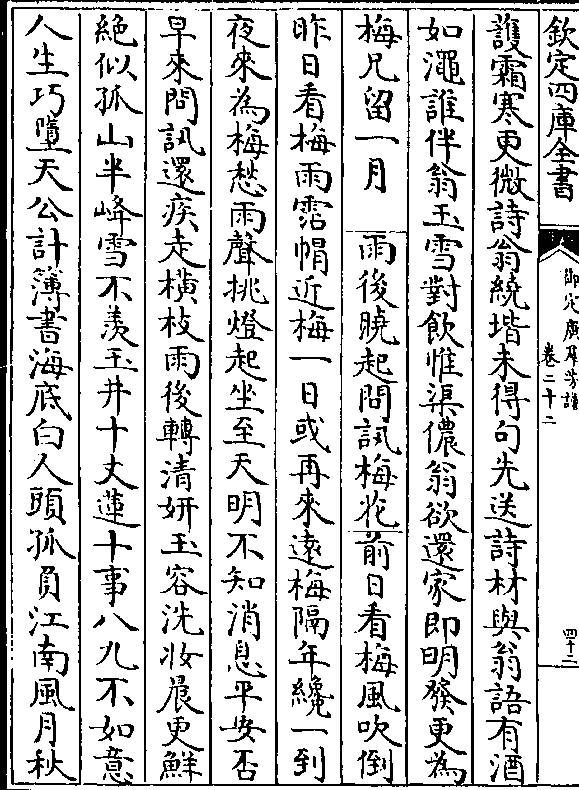 欽定四庫全書
御定廣群芳譜
卷二十二
四十二
護霜寒更微詩翁繞堦未得句先送詩材與翁語有酒
如澠誰伴翁玉雪對飲惟渠儂翁欲還家即明發更為
梅兄留一月　雨後曉起問訊梅花前日看梅風吹倒
昨日看梅雨霑帽近梅一日或再來遠梅隔年纔一到
夜來為梅愁雨聲挑燈起坐至天明不知消息平安否
早來問訊還疾走橫枝雨後轉清妍玉容洗妝晨更鮮
絕似孤山半峰雪不羨玉井十丈蓮十事八九不如意
人生巧墮天公計簿書海底白人頭孤負江南風月秋